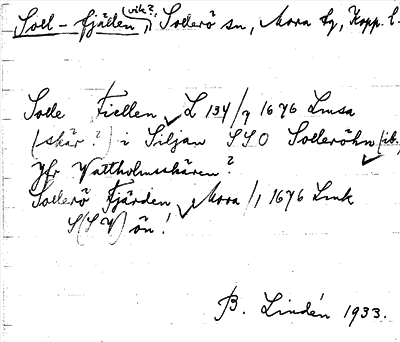 Soll-fjällen (vik?), Sollerö sn, Mora tg, Kopp. l.
Solle Fiellen L 134/9 1676 Lmsa
(skär?) i Siljan SSO Solleröhn (ib.)
Jfr Vattholmsskären?
Sollerö Fjärden, Mora/1 1676 Lmk
S(SV) ön!
B. Lindén 1933.